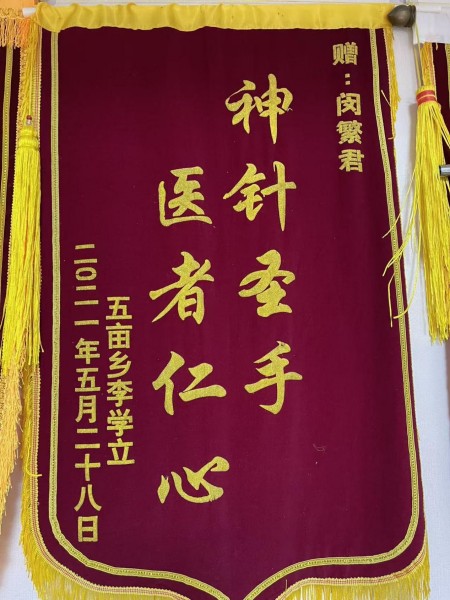 赠：闵繁君
神针圣手
医者仁心
五亩乡李学立
二〇二一年五月二十八日